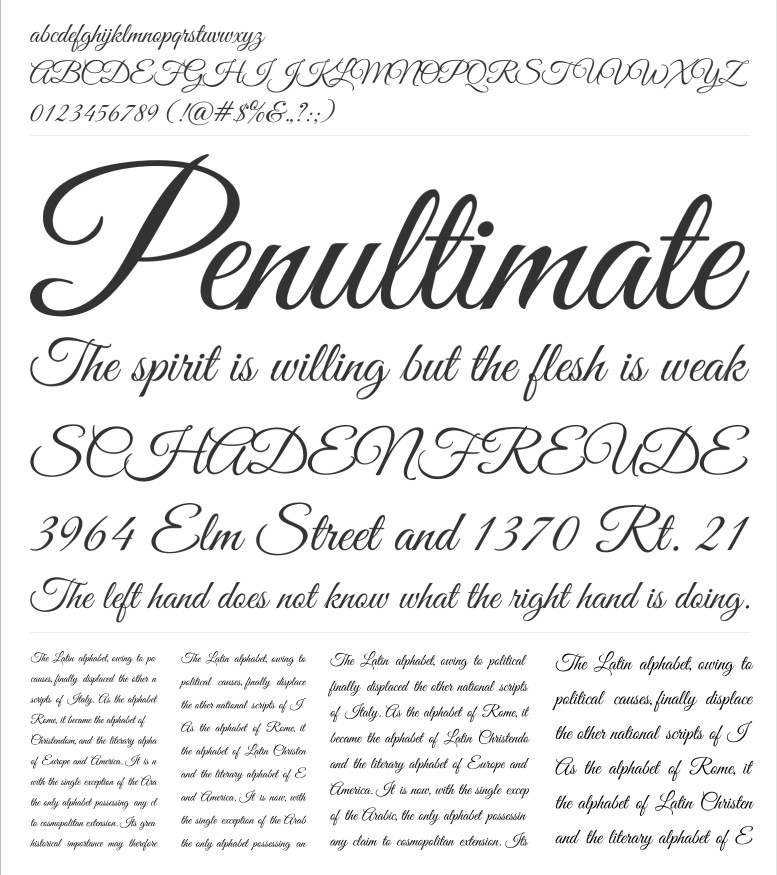 abcdefghijklmnopqrstuvwxyz
ABCDEFGHIJKLMNOPQRSTUVWXYZ
0123456789 (!@#$%&.,?:;)
Penultimate
The spirit is willing but the flesh is weak
SCHADENFREUDE
3964 Elm Street and 1370 Rt. 21
The left hand does not know what the right hand is doing.
The Latin alphabet, owing to po
causes, finally displaced the other n
scripts of Italy. As the alphabet
Rome, it became the alphabet of
Christendom, and the literary alpha
of Europe and America. It is n
with the single exception of the Ara
the only alphabet possessing any cl
to cosmopolitan extension. Its grea
historical importance may therefore
The Latin alphabet, owing to
political causes, finally displace
the other national scripts of I
As the alphabet of Rome, it
the alphabet of Latin Christen
and the literary alphabet of E
and America. It is now, with
the single exception of the Arab
the only alphabet possessing an
The Latin alphabet, owing to political
finally displaced the other national scripts
of Italy. As the alphabet of Rome, it
became the alphabet of Latin Christendo
and the literary alphabet of Europe and
America. It is now, with the single excep
of the Arabic, the only alphabet possessin
any claim to cosmopolitan extension. Its
The Latin alphabet, owing to
political causes, finally displace
the other national scripts of I
As the alphabet of Rome, it
the alphabet of Latin Christen
and the literary alphabet of E